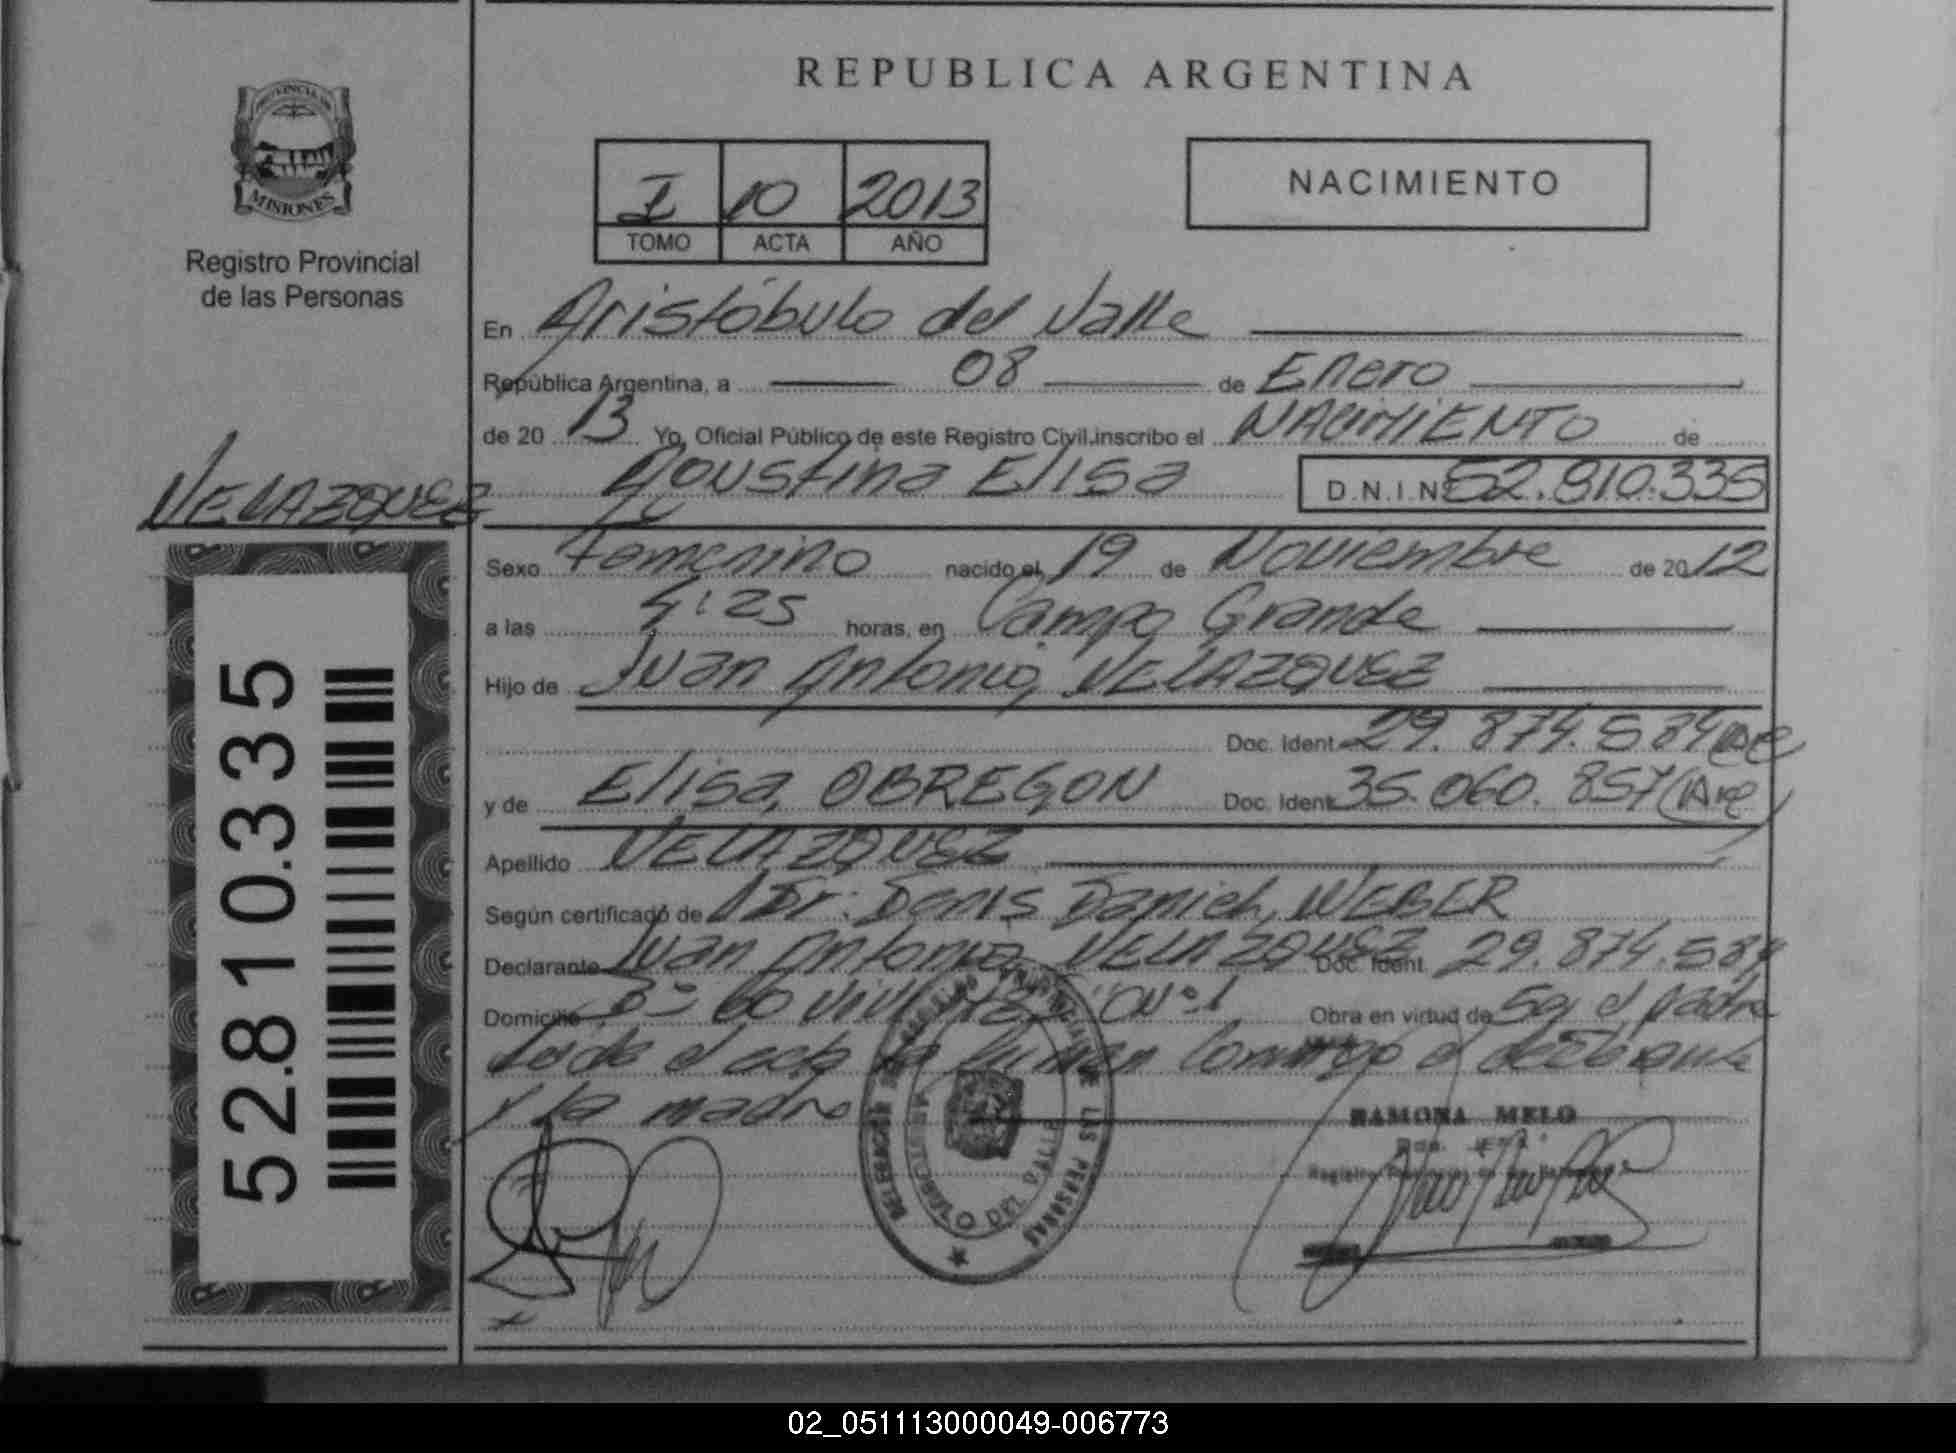 REPUBLICA ARGENTINA
PROVINCIA DE
MISIONES
Registro Provincial
de las Personas
I 10 2013
TOMO ACTA AÑO
NACIMIENTO
En Aristóbulo del Valle
República Argentina, a 08 de Enero
de 2013 Yo, Oficial Público de este Registro Civil inscribo el NACIMIENTO de
VELAZQUEZ Agustina Elisa D.N.I.Nº 52.810.335
Sexo Femenino nacido el 19 de Noviembre de 2012
a las 4:25 horas, en Campo Grande
Hijo de Juan Antonio, VELAZQUEZ
Doc. Ident. 29.874.584
y de Elisa, OBREGON Doc. Ident. 35.060.857
Apellido VELAZQUEZ
Según certificado de Dr. Denis Daniel, WEBER
Declarante Juan Antonio, VELAZQUEZ Doc. Ident. 29.874.584
Domicilio Bº 60 Obra en virtud de Ser el padre
el acta la firman conmigo el declarante
y la madre
52.810.335
DELEGACION PROVINCIAL DE LAS PERSONAS
DEL VALLE
RAMONA MELO
02_051113000049-006773